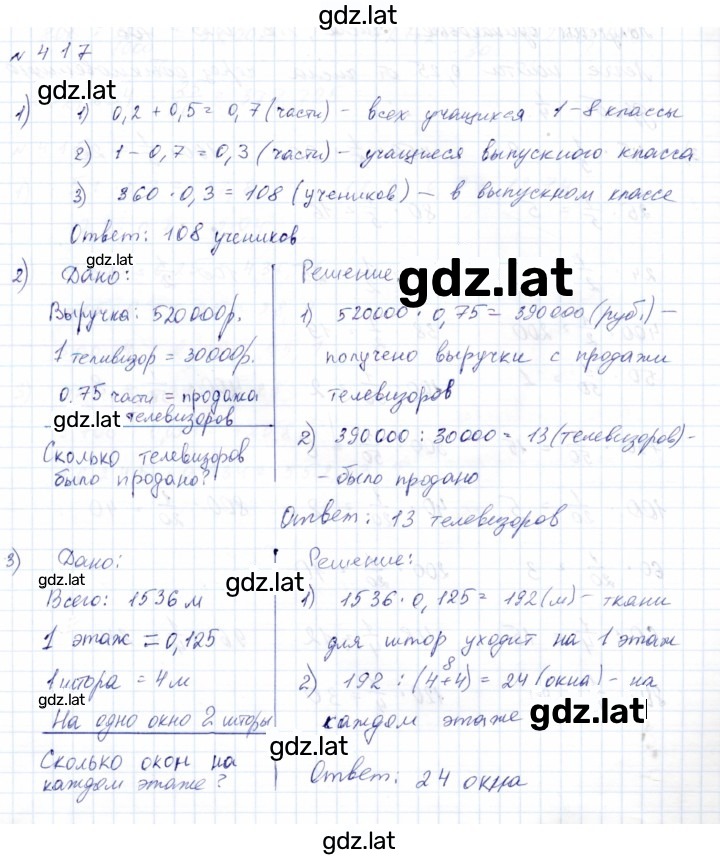 gdz.lat
№ 417
gdz.lat
1) 1) 0,2 + 0,5 = 0,7 (части) - всех учащихся 1-8 классы
2) 1 - 0,7 = 0,3 (части) - учащиеся выпускного класса
3) 360 · 0,3 = 108 (учеников) - в выпускном классе
Ответ: 108 учеников
gdz.lat
2) Дано:
Выручка: 520000р.
1 телевизор = 30000р.
0.75 части = продажа
телевизоров
gdz.lat
Сколько телевизоров
было продано?
Решение:
gdz.lat
1) 520000 · 0,75 = 390000 (руб.) -
получено выручки с продажи
телевизоров
2) 390000 : 30000 = 13 (телевизоров) -
- было продано
Ответ: 13 телевизоров
3) Дано:
gdz.lat
Всего: 1536 м
1 этаж = 0,125
1 штора = 4м
gdz.lat
На одно окно 2 шторы
Сколько окон на
каждом этаже?
Решение:
gdz.lat
1) 1536 · 0,125 = 192 (м) - ткани
для штор уходит на 1 этаж
8
2) 192 : (4+4) = 24 (окна) - на
каждом этаже
gdz.lat
gdz.lat
Ответ: 24 окна
gdz.lat